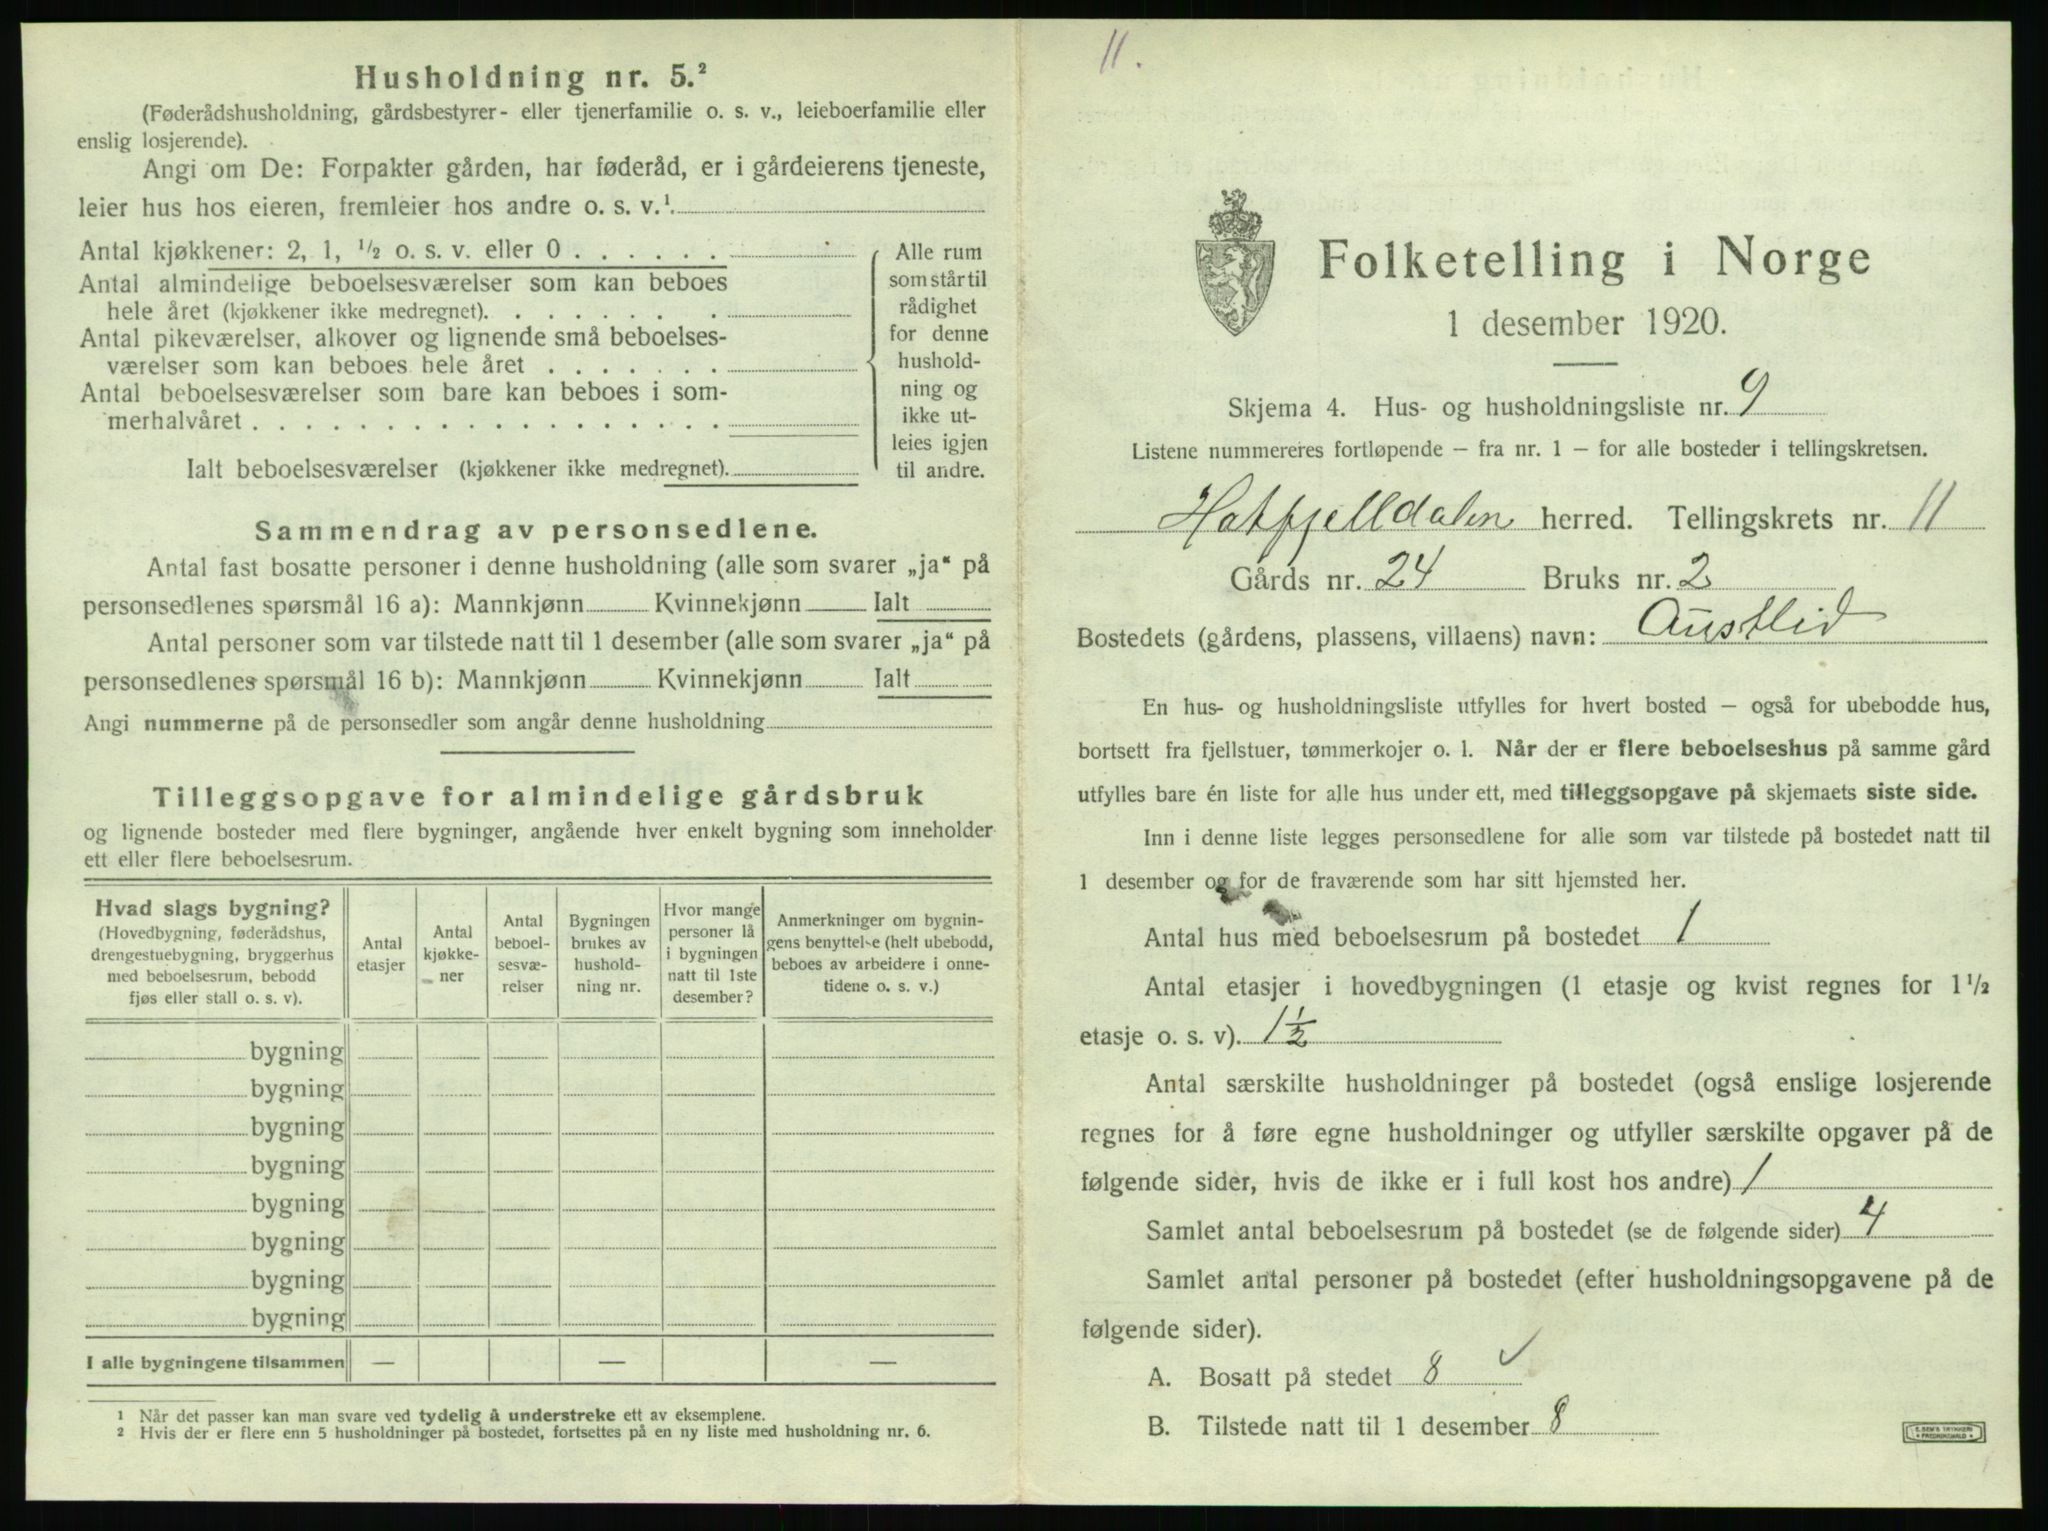 Husholdning nr. 5.²
(Føderådshusholdning, gårdsbestyrer- eller tjenerfamilie o. s. v., leieboerfamilie eller
enslig losjerende).
Angi om De: Forpakter gården, har føderåd, er i gårdeierens tjeneste,
leier hus hos eieren, fremleier hos andre o. s. v.¹
Antal kjøkkener: 2, 1, ½ o. s. v. eller 0
Antal almindelige beboelsesværelser som kan beboes
hele året (kjøkkener ikke medregnet).
Antal pikeværelser, alkover og lignende små beboelses-
værelser som kan beboes hele året
Antal beboelsesværelser som bare kan beboes i som-
merhalvåret
Ialt beboelsesværelser (kjøkkener ikke medregnet).
Alle rum
som står til
rådighet
for denne
hushold-
ning og
ikke ut-
leies igjen
til andre.
Sammendrag av personsedlene.
Antal fast bosatte personer i denne husholdning (alle som svarer „ja“ på
personsedlenes spørsmål 16 a): Mannkjønn Kvinnekjønn Ialt
Antal personer som var tilstede natt til 1 desember (alle som svarer „ja“ på
personsedlenes spørsmål 16 b): Mannkjønn Kvinnekjønn Ialt
Angi nummerne på de personsedler som angår denne husholdning
Tilleggsopgave for almindelige gårdsbruk
og lignende bosteder med flere bygninger, angående hver enkelt bygning som inneholder
ett eller flere beboelsesrum.
Hvad slags bygning?
(Hovedbygning, føderådshus,
drengestuebygning, bryggerhus
med beboelsesrum, bebodd
fjøs eller stall o. s. v).
Antal
etasjer
Antal
kjøkke-
ner
Antal
beboel-
sesvæ-
relser
Bygningen
brukes av
hushold-
ning nr.
Hvor mange
personer lå
i bygningen
natt til 1ste
desember?
Anmerkninger om bygnin-
gens benyttelse (helt ubebodd,
beboes av arbeidere i onne-
tidene o. s. v.)
bygning
bygning
bygning
bygning
bygning
bygning
bygning
bygning
I alle bygningene tilsammen — — —
¹ Når det passer kan man svare ved tydelig å understreke ett av eksemplene.
² Hvis der er flere enn 5 husholdninger på bostedet, fortsettes på en ny liste med husholdning nr. 6.
11.
Folketelling i Norge
1 desember 1920.
Skjema 4. Hus- og husholdningsliste nr. 9
Listene nummereres fortløpende – fra nr. 1 – for alle bosteder i tellingskretsen.
Hatfjelldalen herred. Tellingskrets nr. 11
Gårds nr. 24 Bruks nr. 2
Bostedets (gårdens, plassens, villaens) navn: Austlid
En hus- og husholdningsliste utfylles for hvert bosted – også for ubebodde hus,
bortsett fra fjellstuer, tømmerkojer o. l. Når der er flere beboelseshus på samme gård
utfylles bare én liste for alle hus under ett, med tilleggsopgave på skjemaets siste side.
Inn i denne liste legges personsedlene for alle som var tilstede på bostedet natt til
1 desember og for de fraværende som har sitt hjemsted her.
Antal hus med beboelsesrum på bostedet 1
Antal etasjer i hovedbygningen (1 etasje og kvist regnes for 1½
etasje o. s. v). 1½
Antal særskilte husholdninger på bostedet (også enslige losjerende
regnes for å føre egne husholdninger og utfyller særskilte opgaver på de
følgende sider, hvis de ikke er i full kost hos andre) 1
Samlet antal beboelsesrum på bostedet (se de følgende sider) 4
Samlet antal personer på bostedet (efter husholdningsopgavene på de
følgende sider).
A. Bosatt på stedet 8 ✓
B. Tilstede natt til 1 desember 8
E. SEM'S TRYKKERI
FREDRIKSHALD